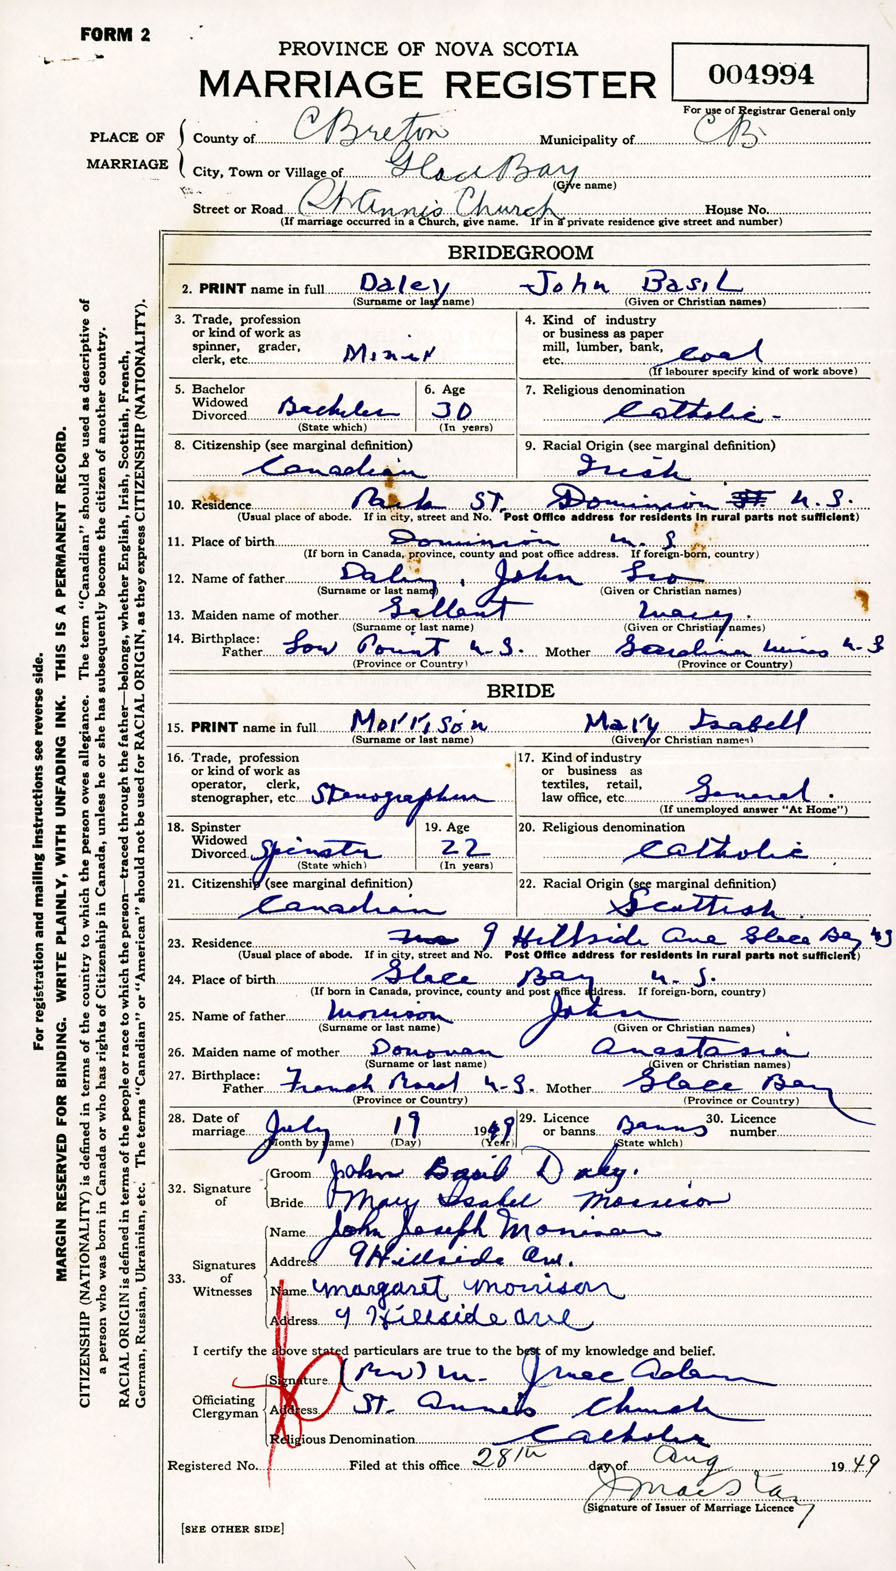 FORM 2
PROVINCE OF NOVA SCOTIA
MARRIAGE REGISTER
004994
For use of Registrar General only
PLACE OF MARRIAGE
County of C Breton Municipality of C B.
City, Town or Village of Glace Bay
(Give name)
Street or Road St Anns Church House No.
(If marriage occurred in a Church, give name. If in a private residence give street and number)
BRIDEGROOM
2. PRINT name in full Daley John Basil
(Surname or last name) (Given or Christian names)
3. Trade, profession or kind of work as spinner, grader, clerk, etc. Miner
4. Kind of industry or business as paper mill, lumber, bank, etc. Coal
(If labourer specify kind of work above)
5. Bachelor Widowed Divorced Bachelor
(State which)
6. Age 30
(In years)
7. Religious denomination Catholic
8. Citizenship (see marginal definition) Canadian
9. Racial Origin (see marginal definition) Irish
10. Residence Park St. Dominion N.S.
(Usual place of abode. If in city, street and No. Post Office address for residents in rural parts not sufficient)
11. Place of birth Dominion N.S
(If born in Canada, province, county and post office address. If foreign-born, country)
12. Name of father Daley, John Leo
(Surname or last name) (Given or Christian names)
13. Maiden name of mother Gallant Mary.
(Surname or last name) (Given or Christian names)
14. Birthplace: Father Low Point N.S. Mother Gardiner Mines N.S
(Province or Country) (Province or Country)
BRIDE
15. PRINT name in full Morrison Mary Isabell
(Surname or last name) (Given or Christian names)
16. Trade, profession or kind of work as operator, clerk, stenographer, etc. Stenographer
17. Kind of industry or business as textiles, retail, law office, etc. General.
(If unemployed answer "At Home")
18. Spinster Widowed Divorced Spinster
(State which)
19. Age 22
(In years)
20. Religious denomination Catholic
21. Citizenship (see marginal definition) Canadian
22. Racial Origin (see marginal definition) Scottish
23. Residence 9 Hillside Ave Glace Bay NS
(Usual place of abode. If in city, street and No. Post Office address for residents in rural parts not sufficient)
24. Place of birth Glace Bay N.S.
(If born in Canada, province, county and post office address. If foreign-born, country)
25. Name of father Morrison John
(Surname or last name) (Given or Christian names)
26. Maiden name of mother Donovan Anastasia
(Surname or last name) (Given or Christian names)
27. Birthplace: Father French Road N.S. Mother Glace Bay
(Province or Country) (Province or Country)
28. Date of marriage July 19 1949
(Month by name) (Day) (Year)
29. Licence or banns Banns
(State which)
30. Licence number
32. Signature of
Groom John Basil Daley.
Bride Mary Isabel Morrison
33. Signatures of Witnesses
Name John Joseph Morrison
Address 9 Hillside Ave.
Name Margaret Morrison
Address 9 Hillside Ave
I certify the above stated particulars are true to the best of my knowledge and belief.
Officiating Clergyman
Signature (Rev) M. J MacAdam
Address St. Anne's Church
Religious Denomination Catholic
Registered No. Filed at this office 28th day of Aug 1949
(Signature of Issuer of Marriage Licence
[SEE OTHER SIDE]
For registration and mailing instructions see reverse side.
MARGIN RESERVED FOR BINDING. WRITE PLAINLY, WITH UNFADING INK. THIS IS A PERMANENT RECORD.
CITIZENSHIP (NATIONALITY) is defined in terms of the country to which the person owes allegiance. The term "Canadian" should be used as descriptive of
a person who was born in Canada or who has rights of Citizenship in Canada, unless he or she has subsequently become the citizen of another country.
RACIAL ORIGIN is defined in terms of the people or race to which the person—traced through the father—belongs, whether English, Irish, Scottish, French,
German, Russian, Ukrainian, etc. The terms "Canadian" or "American" should not be used for RACIAL ORIGIN, as they express CITIZENSHIP (NATIONALITY).